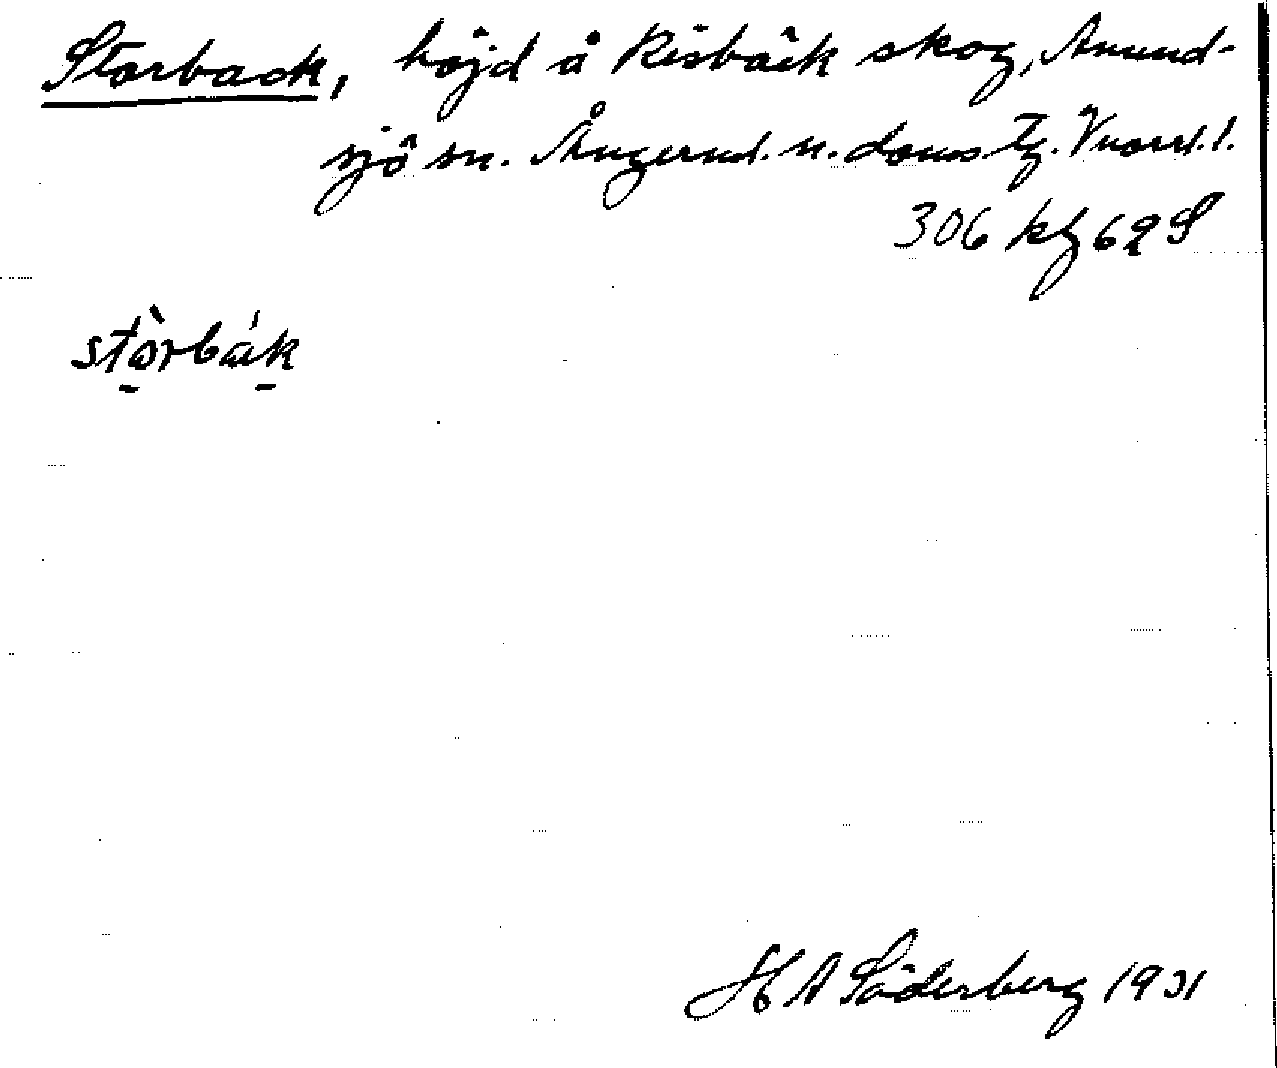 Storback, höjd å Risbäck skog, Anund-
sjö sn. Ångerml. n. doms Tg. Vnorrl. l.
306 kg 62 S
stòrbák
H A Söderberg 1931